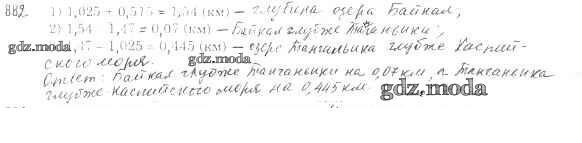 882. 1) 1,025 + 0,515 = 1,54 (км) – глубина озера Байкал;
2) 1,54 – 1,47 = 0,07 (км) – Байкал глубже Танганьики;
gdz.moda 47 – 1,025 = 0,445 (км) – озеро Танганьика глубже Каспий-
ского моря. gdz.moda
Ответ: Байкал глубже Танганьики на 0,07 км, а Танганьика
глубже Каспийского моря на 0,445 км. gdz.moda